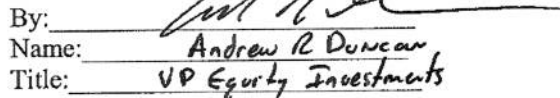 By:
Name: Andrew R Duncan
Title: VP Equity Investments